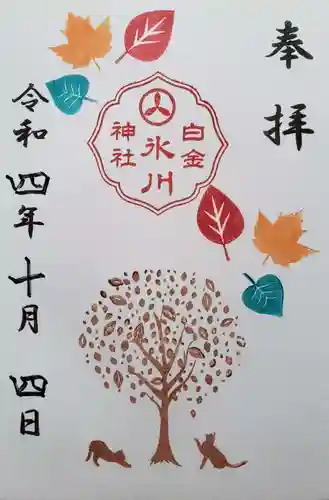 奉拝
白金
氷川
神社
令和四年十月四日